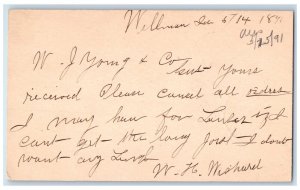 Wellman Ia 5/14 1891
Ans 5/15/91
W. J Young & Co
Gent Yours
received Please Cancel all orders
I may have for Lumber if I
cant get the long Joist I dont
want any Lumber
W. H. Wishard